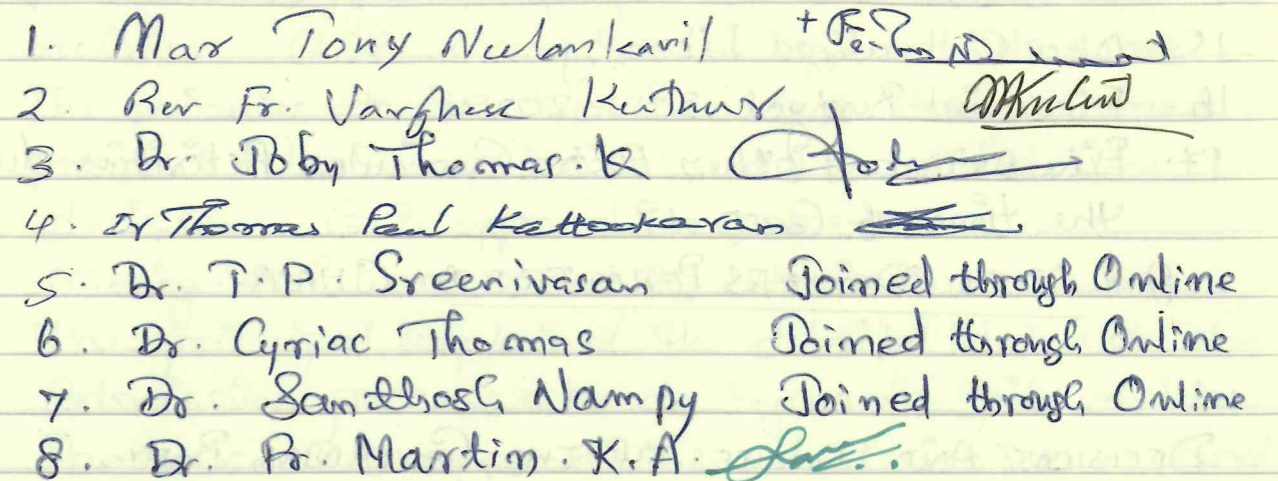 1. Mar Tony Neelankavil
2. Rev Fr. Varghese Kuthur
3. Dr. Joby Thomas. K
4. Dr Thomas Paul Kattookaran
5. Dr. T. P. Sreenivasan Joined through Online
6. Dr. Cyriac Thomas Joined through Online
7. Dr. Santhosh Nampy Joined through Online
8. Dr. Fr. Martin. K. A.